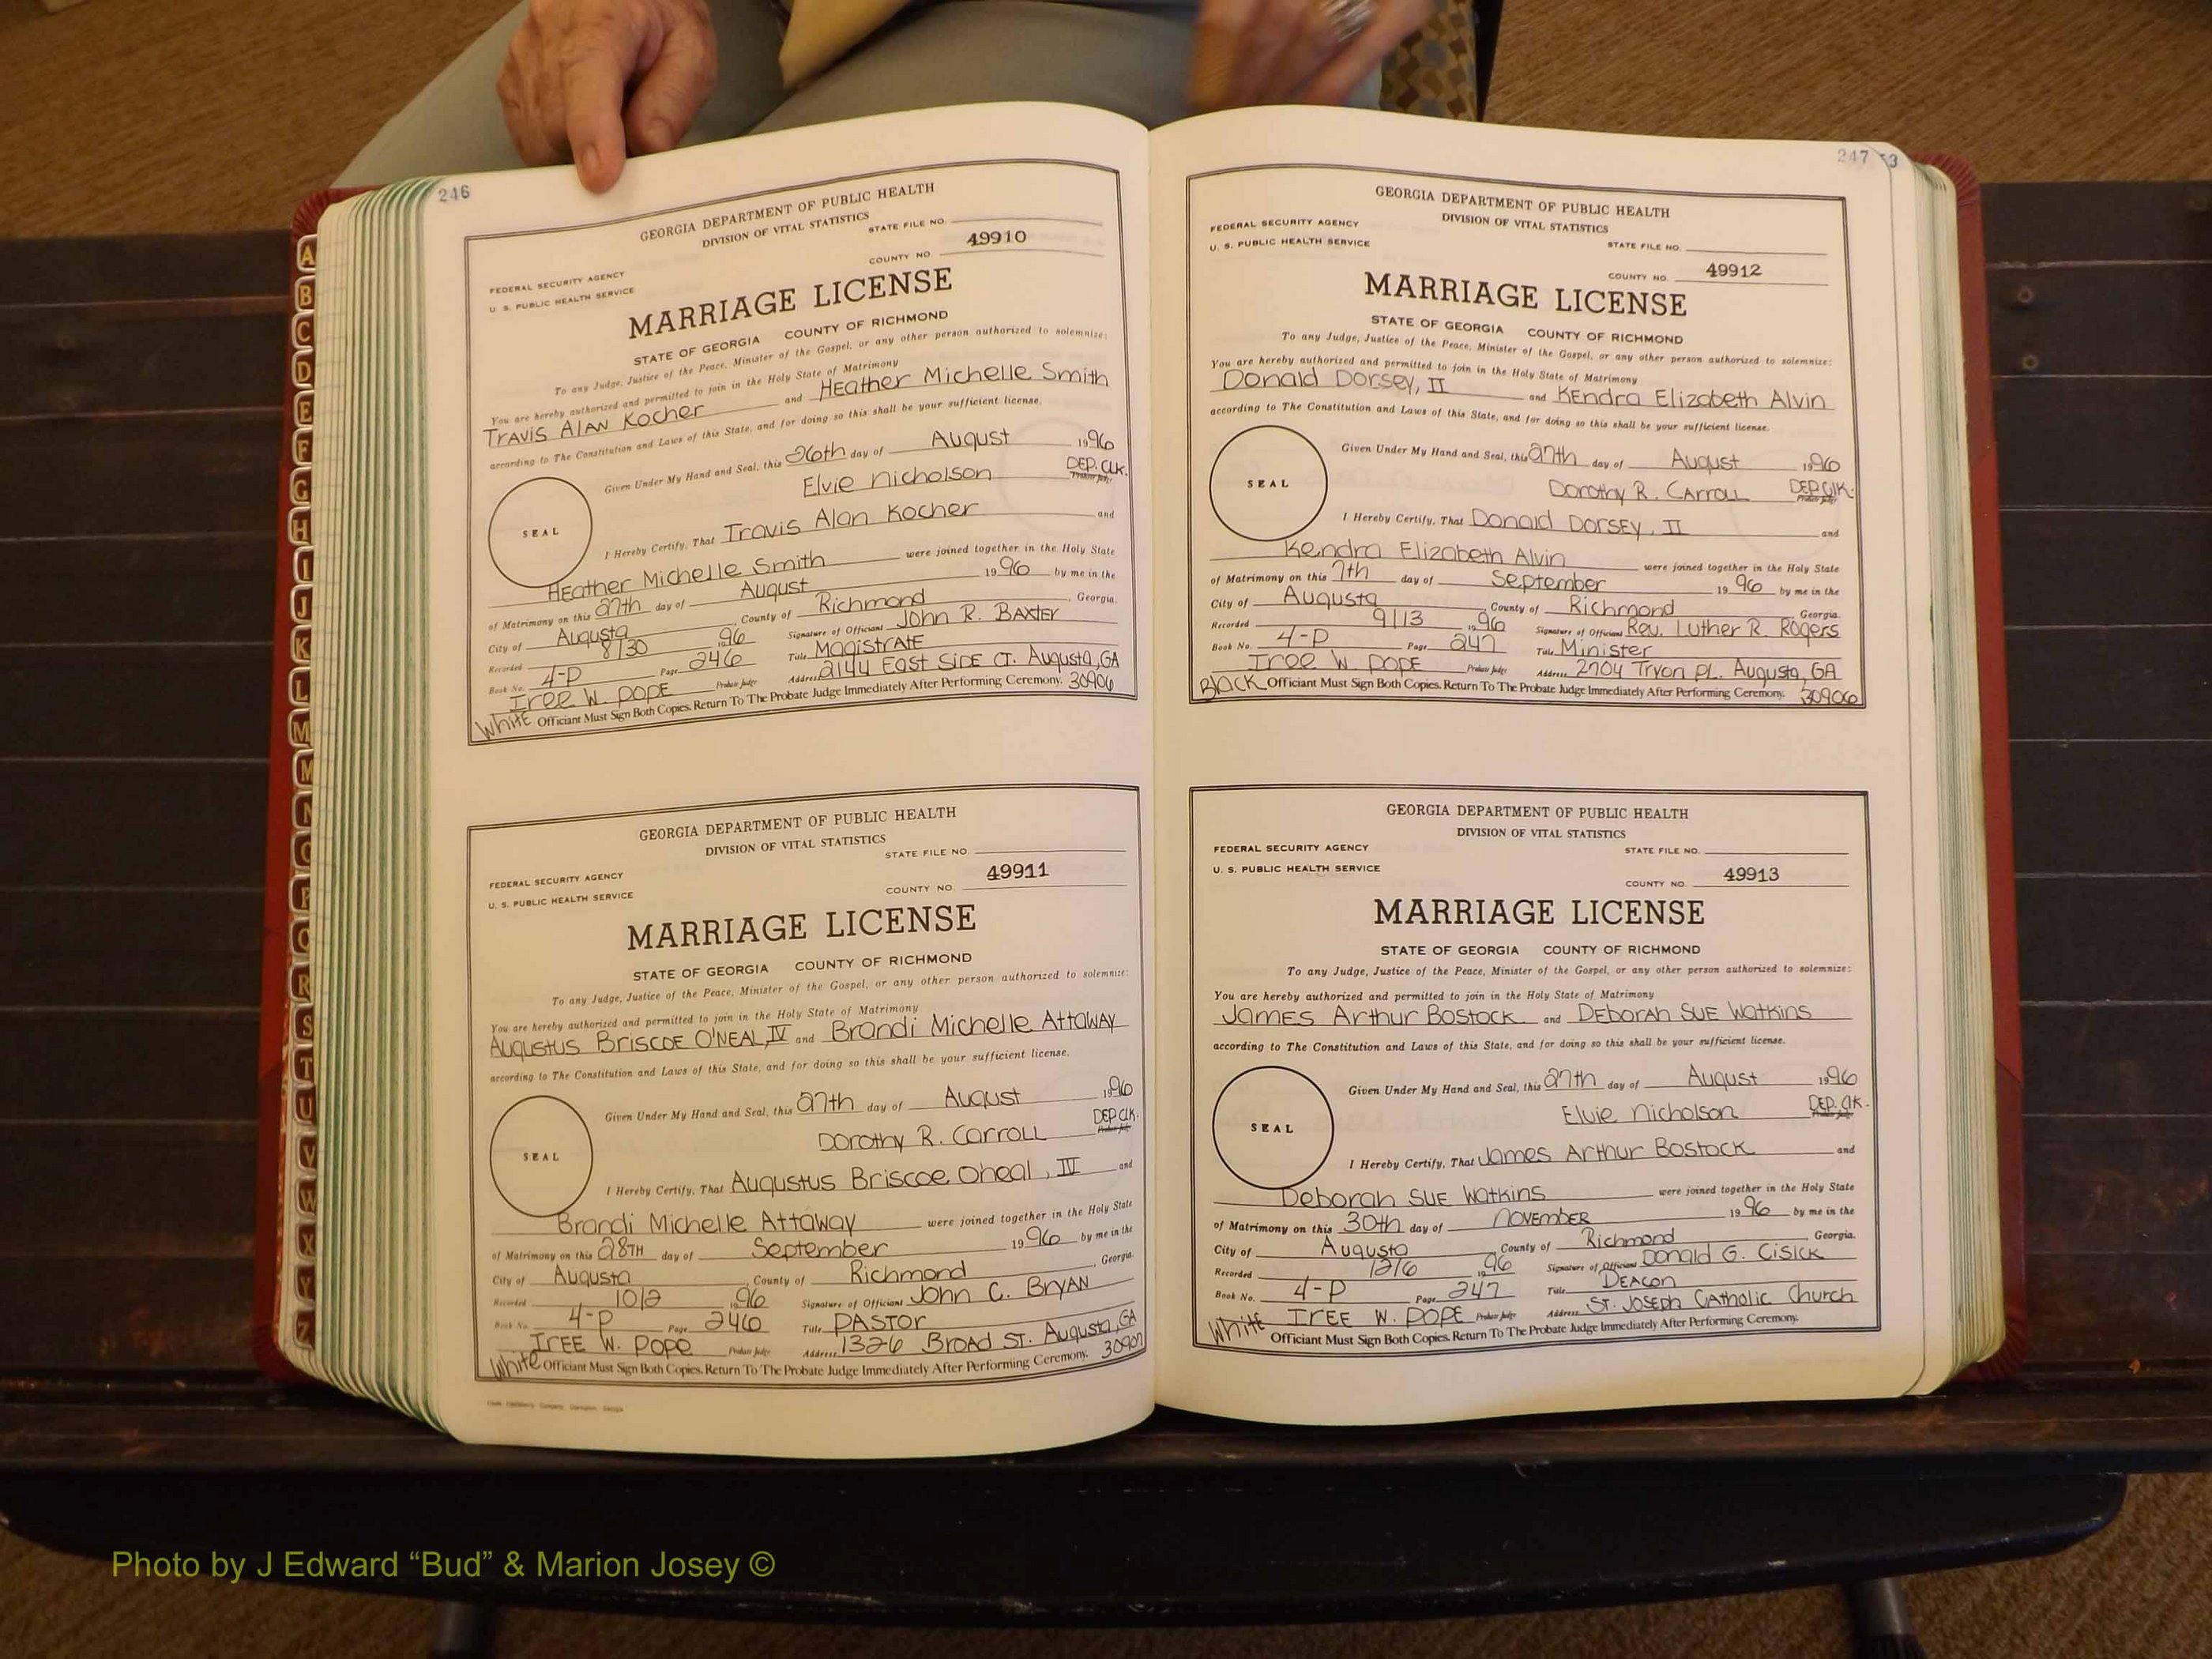 246
GEORGIA DEPARTMENT OF PUBLIC HEALTH
DIVISION OF VITAL STATISTICS
STATE FILE NO.
49910
COUNTY NO.
FEDERAL SECURITY AGENCY
U. S. PUBLIC HEALTH SERVICE
MARRIAGE LICENSE
STATE OF GEORGIA COUNTY OF RICHMOND
To any Judge, Justice of the Peace, Minister of the Gospel, or any other person authorized to solemnize:
You are hereby authorized and permitted to join in the Holy State of Matrimony
Travis Alan Kocher and Heather Michelle Smith
according to The Constitution and Laws of this State, and for doing so this shall be your sufficient license.
Given Under My Hand and Seal, this 26th day of August 1996
Elvie Nicholson DEP. CLK.
Probate Judge
SEAL
I Hereby Certify, That Travis Alan Kocher and
Heather Michelle Smith were joined together in the Holy State
of Matrimony on this 27th day of August 1996 by me in the
City of Augusta, County of Richmond, Georgia.
Recorded 8/30 1996 Signature of Officiant John R. Baxter
Book No. 4-P Page 246 Title Magistrate
Iree W. Pope Probate Judge Address 2144 East Side Ct. Augusta, GA
White Officiant Must Sign Both Copies. Return To The Probate Judge Immediately After Performing Ceremony. 30906
GEORGIA DEPARTMENT OF PUBLIC HEALTH
DIVISION OF VITAL STATISTICS
STATE FILE NO.
49911
COUNTY NO.
FEDERAL SECURITY AGENCY
U. S. PUBLIC HEALTH SERVICE
MARRIAGE LICENSE
STATE OF GEORGIA COUNTY OF RICHMOND
To any Judge, Justice of the Peace, Minister of the Gospel, or any other person authorized to solemnize:
You are hereby authorized and permitted to join in the Holy State of Matrimony
Augustus Briscoe O'Neal, IV and Brandi Michelle Attaway
according to The Constitution and Laws of this State, and for doing so this shall be your sufficient license.
Given Under My Hand and Seal, this 27th day of August 1996
Dorothy R. Carroll DEP. CLK.
Probate Judge
SEAL
I Hereby Certify, That Augustus Briscoe Oneal, IV and
Brandi Michelle Attaway were joined together in the Holy State
of Matrimony on this 28TH day of September 1996 by me in the
City of Augusta, County of Richmond, Georgia.
Recorded 10/2 1996 Signature of Officiant John C. Bryan
Book No. 4-P Page 246 Title Pastor
Iree W. Pope Probate Judge Address 1326 Broad St. Augusta, GA
White Officiant Must Sign Both Copies. Return To The Probate Judge Immediately After Performing Ceremony. 30901
247 53
GEORGIA DEPARTMENT OF PUBLIC HEALTH
DIVISION OF VITAL STATISTICS
FEDERAL SECURITY AGENCY
U. S. PUBLIC HEALTH SERVICE
STATE FILE NO.
COUNTY NO. 49912
MARRIAGE LICENSE
STATE OF GEORGIA COUNTY OF RICHMOND
To any Judge, Justice of the Peace, Minister of the Gospel, or any other person authorized to solemnize:
You are hereby authorized and permitted to join in the Holy State of Matrimony
Donald Dorsey, II and Kendra Elizabeth Alvin
according to The Constitution and Laws of this State, and for doing so this shall be your sufficient license.
Given Under My Hand and Seal, this 27th day of August 1996
Dorothy R. Carroll DEP. CLK.
Probate Judge
SEAL
I Hereby Certify, That Donald Dorsey, II and
Kendra Elizabeth Alvin were joined together in the Holy State
of Matrimony on this 7th day of September 1996 by me in the
City of Augusta, County of Richmond, Georgia.
Recorded 9/13 1996 Signature of Officiant Rev. Luther R. Rogers
Book No. 4-P Page 247 Title Minister
Iree W. Pope Probate Judge Address 2704 Tryon Pl. Augusta, GA
Black Officiant Must Sign Both Copies. Return To The Probate Judge Immediately After Performing Ceremony. 30906
GEORGIA DEPARTMENT OF PUBLIC HEALTH
DIVISION OF VITAL STATISTICS
FEDERAL SECURITY AGENCY
STATE FILE NO.
U. S. PUBLIC HEALTH SERVICE
COUNTY NO. 49913
MARRIAGE LICENSE
STATE OF GEORGIA COUNTY OF RICHMOND
To any Judge, Justice of the Peace, Minister of the Gospel, or any other person authorized to solemnize:
You are hereby authorized and permitted to join in the Holy State of Matrimony
James Arthur Bostock and Deborah Sue Watkins
according to The Constitution and Laws of this State, and for doing so this shall be your sufficient license.
Given Under My Hand and Seal, this 27th day of August 1996
Elvie Nicholson DEP. CLK.
Probate Judge
SEAL
I Hereby Certify, That James Arthur Bostock and
Deborah Sue Watkins were joined together in the Holy State
of Matrimony on this 30th day of November 1996 by me in the
City of Augusta, County of Richmond Georgia.
Recorded 12/6 1996 Signature of Officiant Donald G. Cisick
Book No. 4-P Page 247 Title Deacon
Iree W. Pope Probate Judge Address St. Joseph Catholic Church
White Officiant Must Sign Both Copies. Return To The Probate Judge Immediately After Performing Ceremony.
A
B
C
D
E
F
G
H
I
J
K
L
M
M
N
O
P
Q
R
S
T
U
V
W
X
Y
Z
Photo by J Edward “Bud” & Marion Josey ©